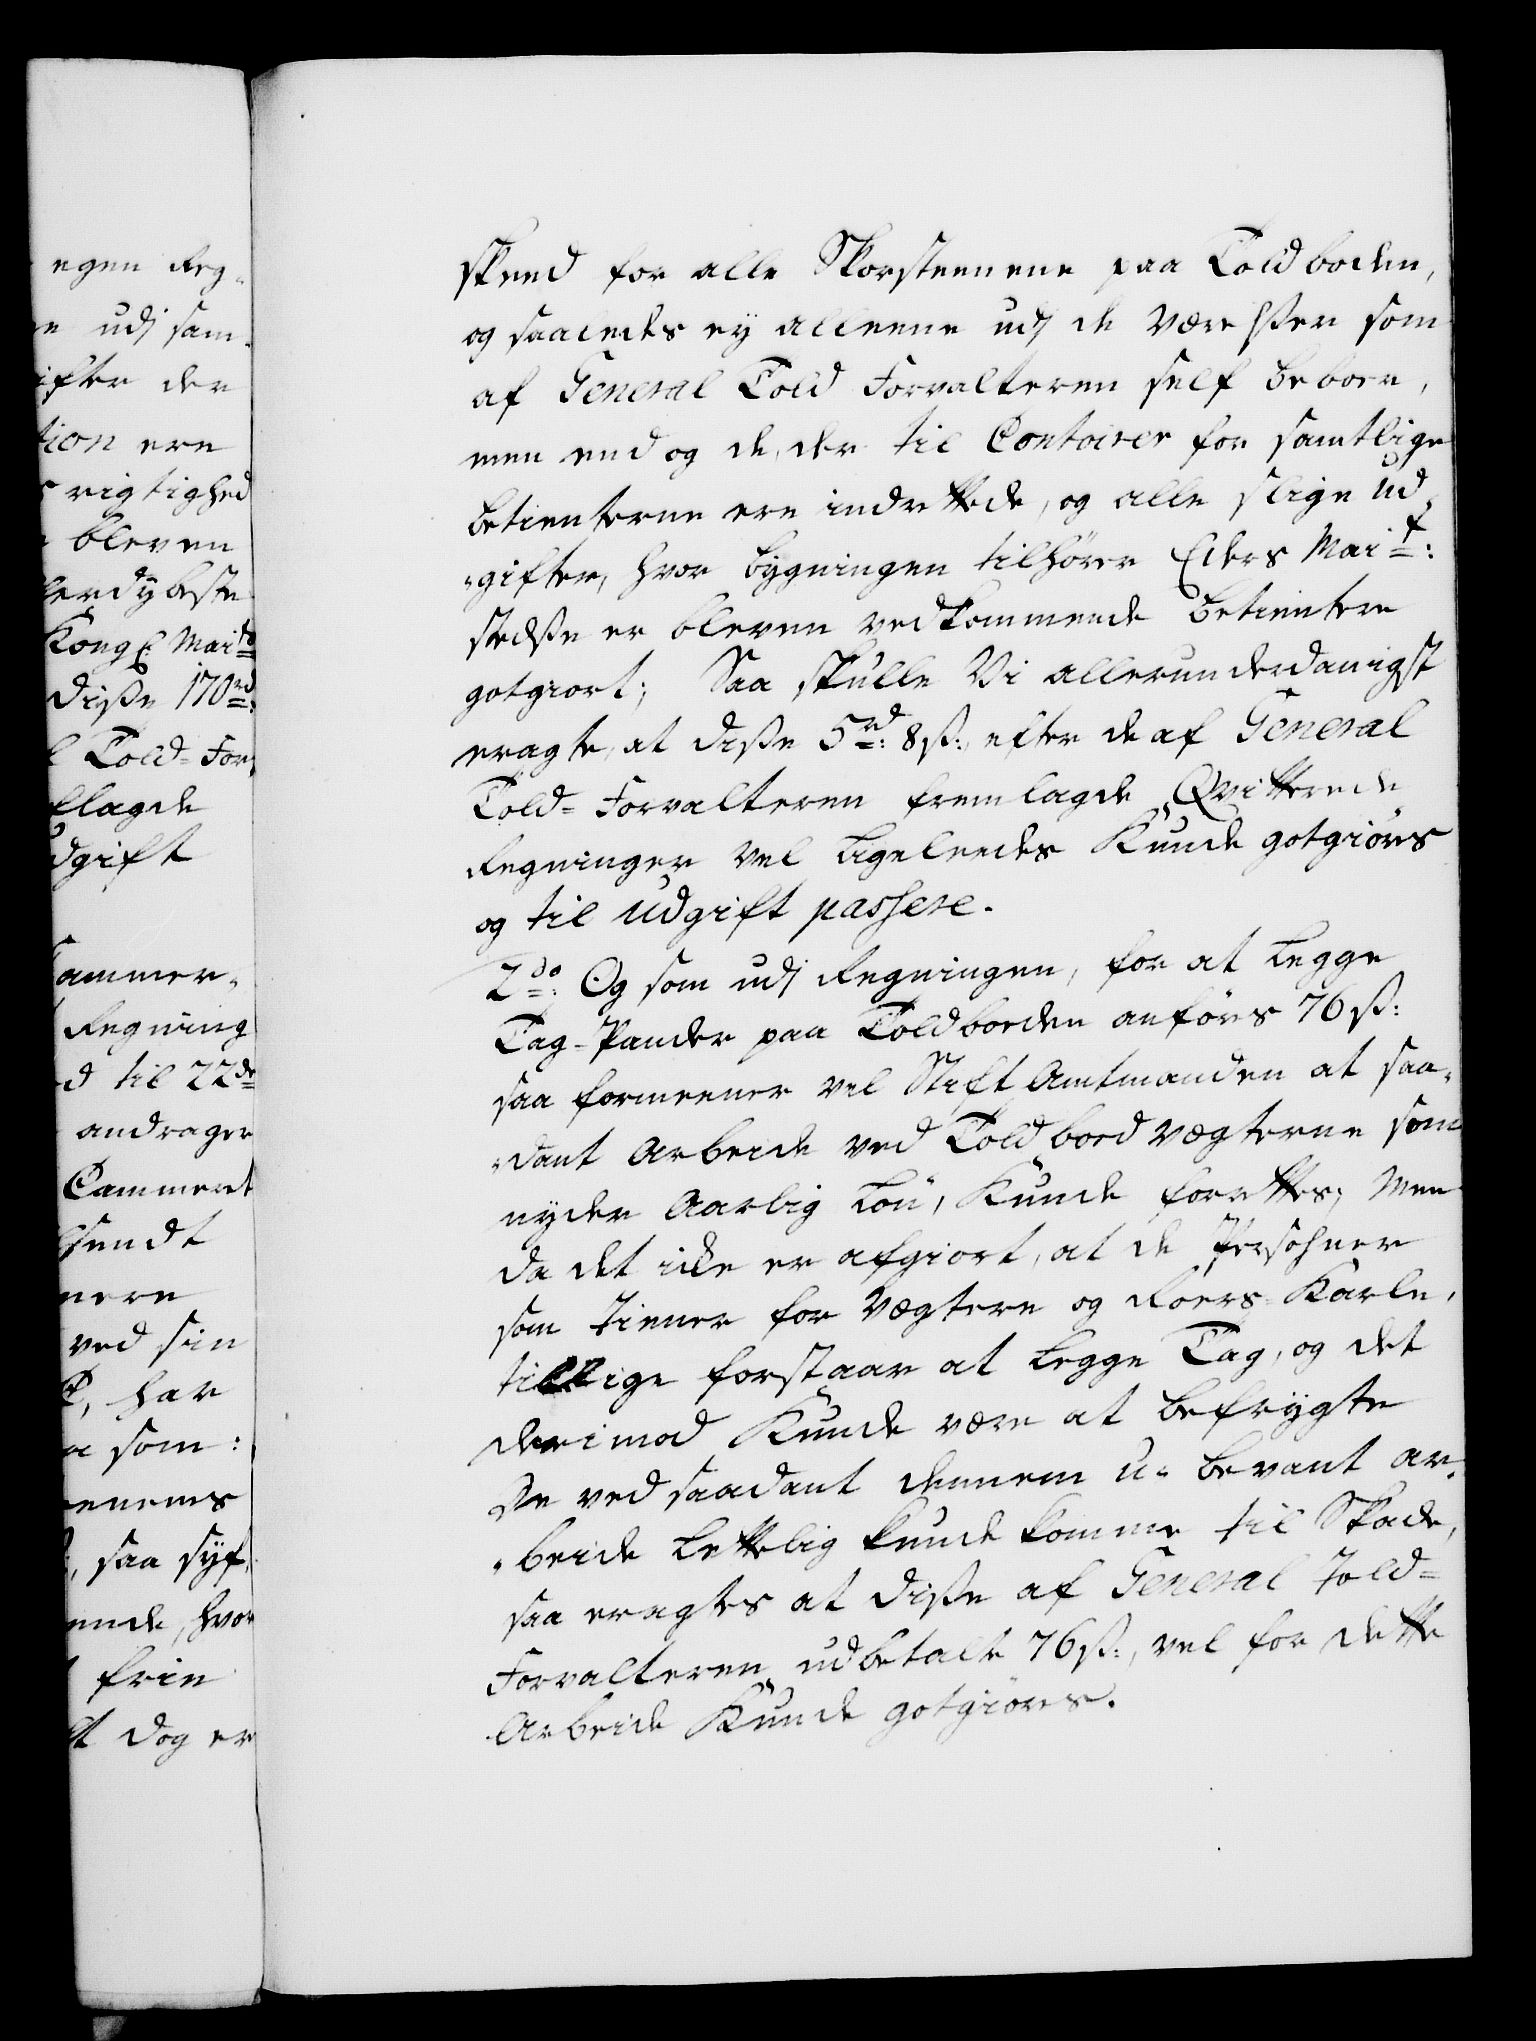 egen Reg-
e udj sam-
ifter der
tion ere
rigtighed
bleven
lerdybeste
Kongl: Maits
diße 170rd:
l Told-For-
flagde
dgift
ammer-
Regning
d til 22de
andrager
Cammeret
sendt
nere
ved sin
har
a som:
enems
, saa syf-
ende, hvor
frie
t dog er
skeed for alle Skorsteenene paa Toldboden,
og saaledes ey alleene udj de Værelser som
af General Told Forvalteren self beboer,
men end og de, der til Contoirer for samtlige
betienterne ere indrettede, og alle slige Ud-
-gifter, hvor bygningen tilhører Eders Mait:
stedse er bleven vedkommende betientere
gotgiort; Saa skulle Vi allerunderdanigst
eragte, at diße 5rd: 8ß:, efter de af General
Told-Forvalteren fremlagde Qvitterede
Regninger vel ligeleedes Kunde gotgiøres
og til udgift passere.
2do: Og som udj Regningen, for at Legge
Tag-Pander paa Toldboeden anføres 76ß:
saa formeener vel Stift Amtmanden at saa-
-dant Arbeide ved Toldboed Vægterne som
nyder Aarlig Løn, Kunde forrettes; Men
da det icke er afgiort, at de Persohner
som tiener for Vægtere og Roers-Karle,
tillige forstaar at Legge Tag, og det
derimod Kunde være at befrygte
de ved saadant dennem u-bevant ar-
-beide Lettelig kunde komme til Skade,
saa eragtes at diße af General Told-
Forvalteren udbetalte 76ß:, vel for dette
Arbeide Kunde gotgiøres.